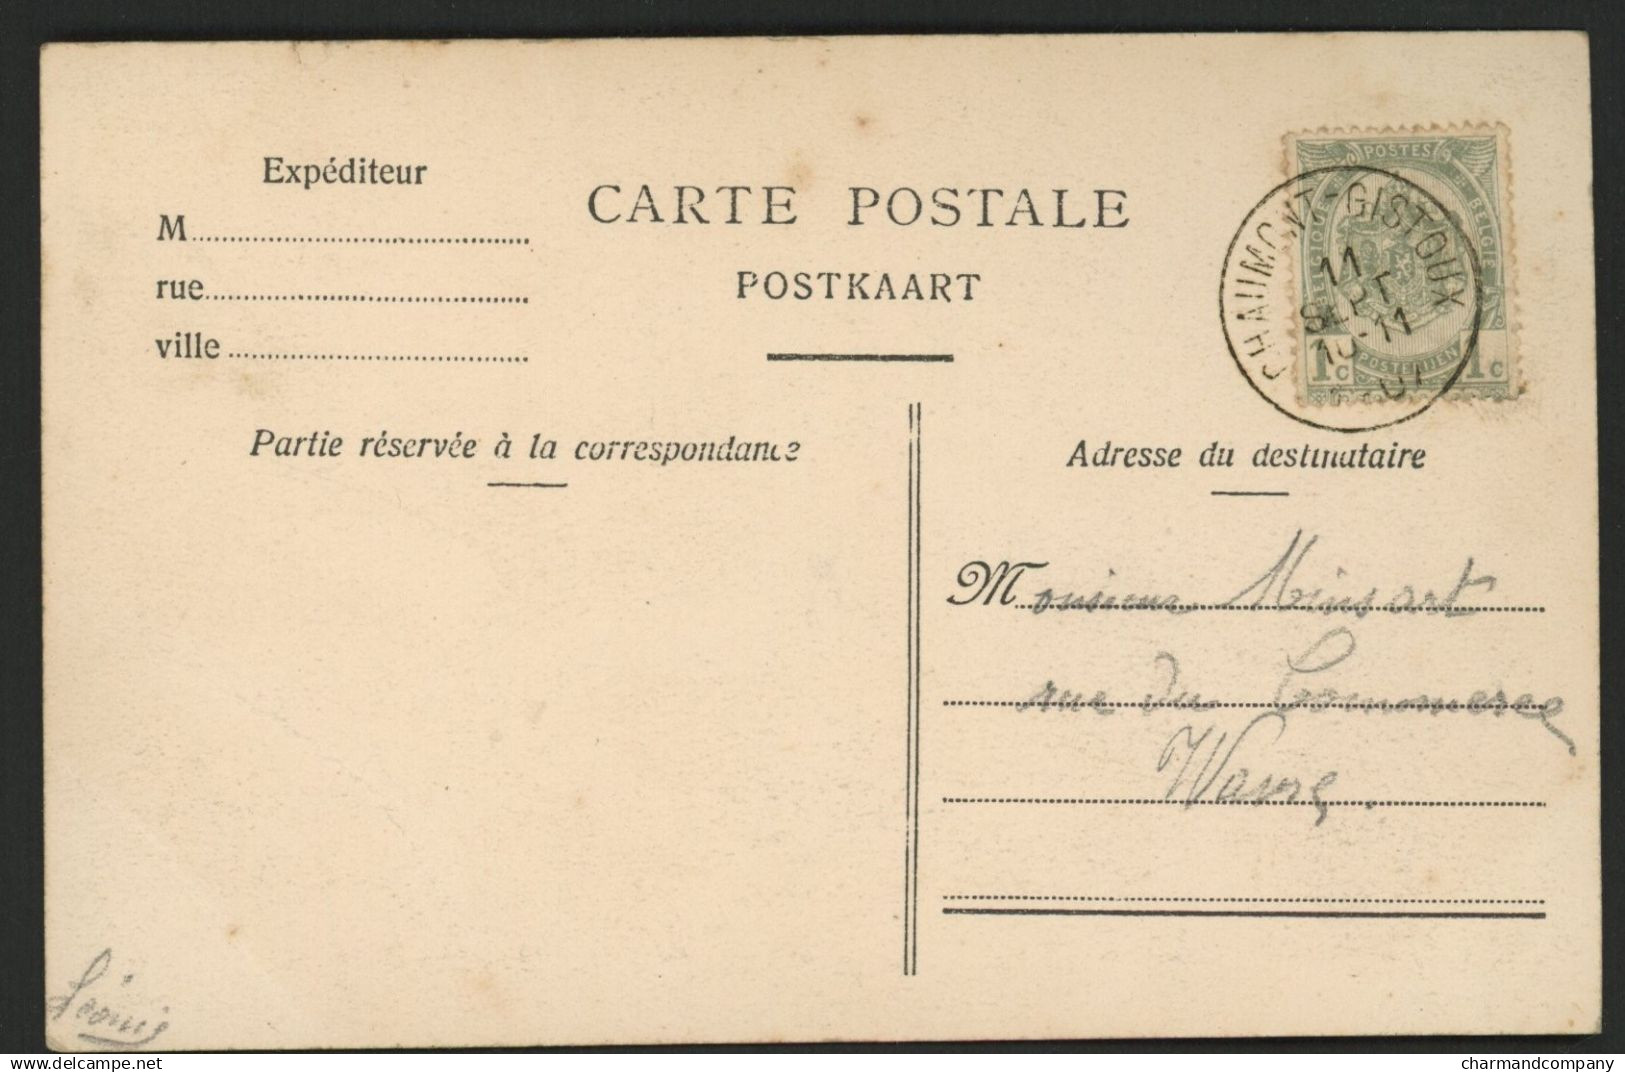 Expéditeur
M
rue
ville
CARTE POSTALE
POSTKAART
POSTES
BELGIQUE BELGIE
POSTERIJEN
1c 1c
CHAUMONT-GISTOUX
11
SEPT
10-11
07
Partie réservée à la correspondance
Adresse du destinataire
Monsieur Minsart
rue du Commerce
Wavre.
Léonie
www.delcampe.net
charmandcompany